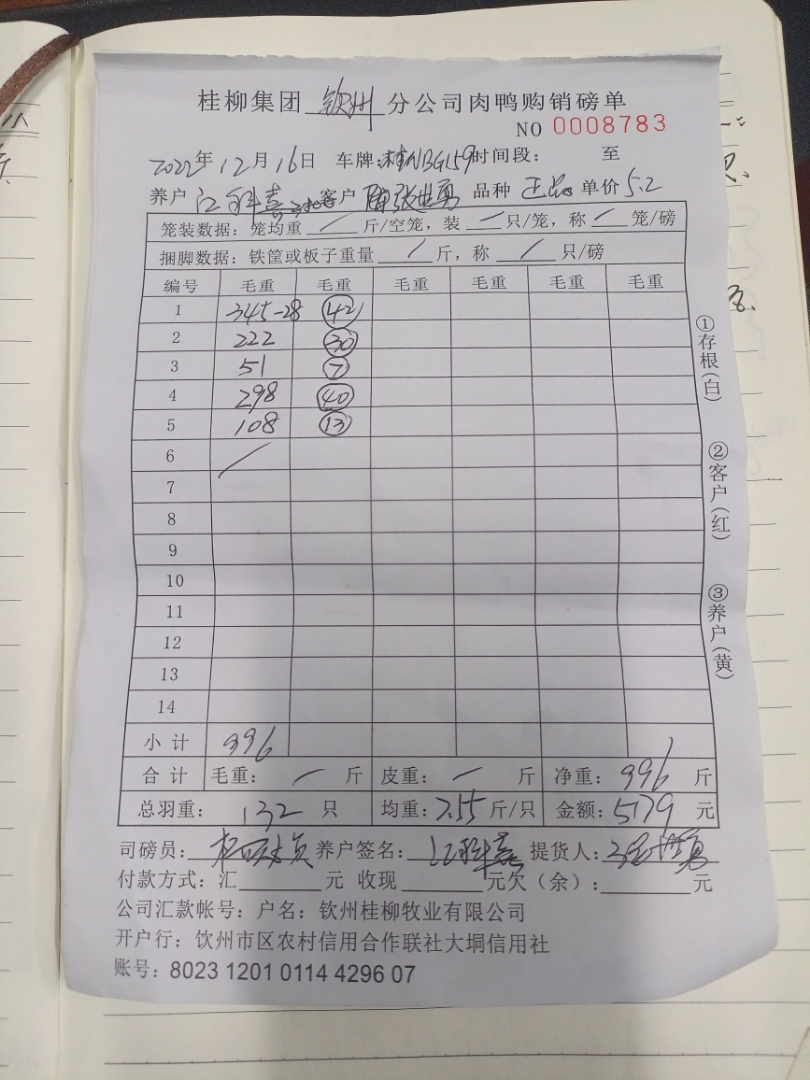 桂柳集团 钦州 分公司肉鸭购销磅单
NO 0008783
2022年 12月 16日 车牌:桂NBG159 时间段: 至
养户 江科喜 客户 张世勇 品种 正品 单价 5.2
笼装数据: 笼均重 / 斤/空笼, 装 / 只/笼, 称 / 笼/磅
捆脚数据: 铁筐或板子重量 / 斤, 称 / 只/磅
编号 毛重 毛重 毛重 毛重 毛重 毛重
1 345-28 42
2 222 30
3 51 7
4 298 40
5 108 13
6 /
7
8
9
10
11
12
13
14
小计 996
合计 毛重: / 斤 皮重: / 斤 净重: 996 斤
总羽重: 132 只 均重: 7.55 斤/只 金额: 5179 元
司磅员: 养户签名: 江科喜 提货人: 张世勇
付款方式: 汇 元 收现 元欠(余): 元
公司汇款帐号: 户名: 钦州桂柳牧业有限公司
开户行: 钦州市区农村信用合作联社大垌信用社
账号: 8023 1201 0114 4296 07
①存根(白)
②客户(红)
③养户(黄)